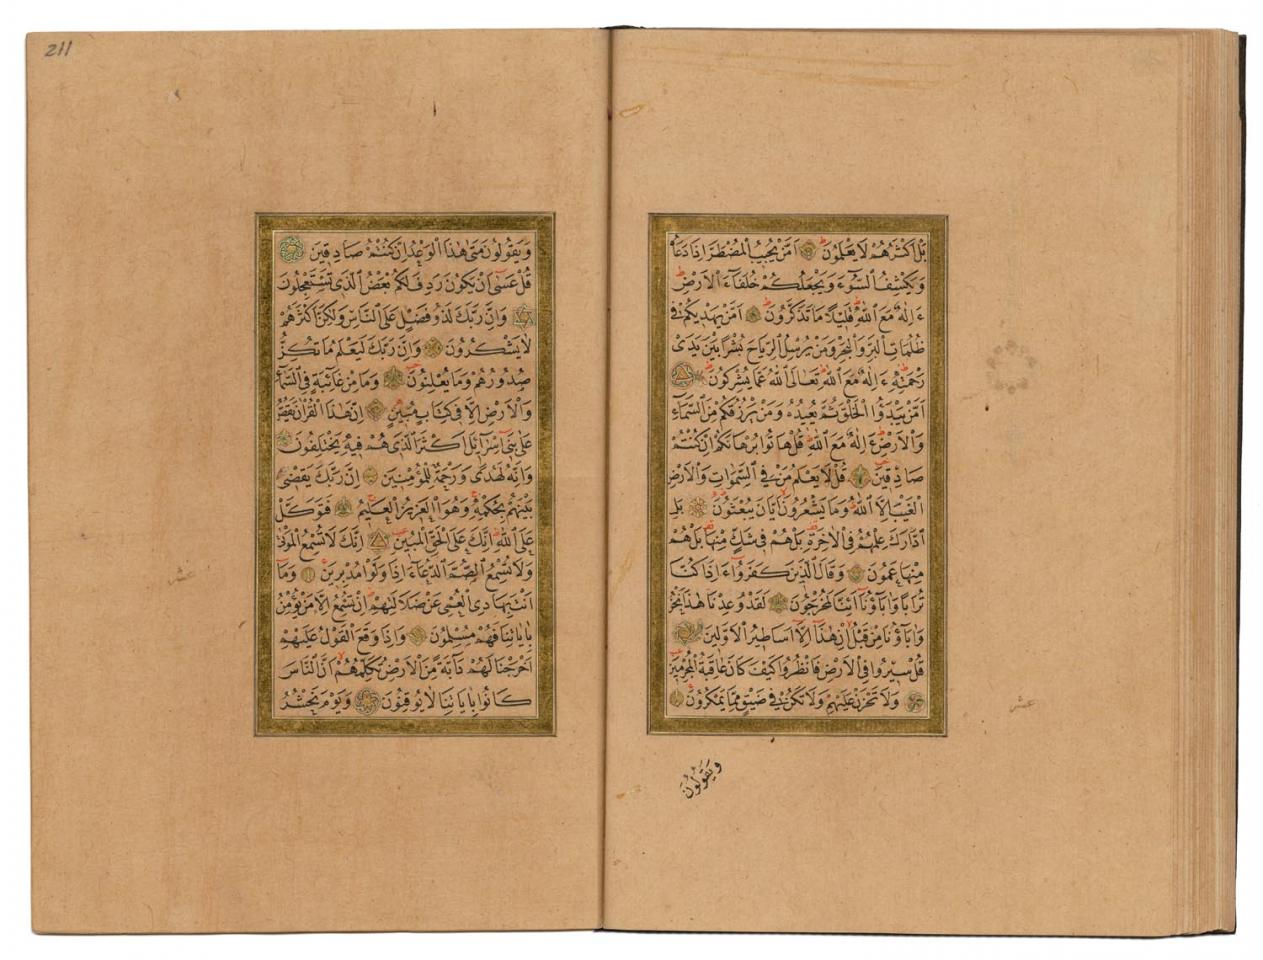 بَلْ اَكْثَرُهُمْ لَا يَعْلَمُونَ اَمَّنْ يُجِيبُ الْمُضْطَرَّ اِذَا دَعَاهُ
وَيَكْشِفُ السُّوءَ وَيَجْعَلُكُمْ خُلَفَاءَ الْاَرْضِ
ءَاِلٰهٌ مَعَ اللّٰهِ قَلِيلًا مَا تَذَكَّرُونَ اَمَّنْ يَهْدِيكُمْ فِي
ظُلُمَاتِ الْبَرِّ وَالْبَحْرِ وَمَنْ يُرْسِلُ الرِّيَاحَ بُشْرًا بَيْنَ يَدَيْ
رَحْمَتِهِ ءَاِلٰهٌ مَعَ اللّٰهِ تَعَالَى اللّٰهُ عَمَّا يُشْرِكُونَ
اَمَّنْ يَبْدَؤُا الْخَلْقَ ثُمَّ يُعِيدُهُ وَمَنْ يَرْزُقُكُمْ مِنَ السَّمَاءِ
وَالْاَرْضِ ءَاِلٰهٌ مَعَ اللّٰهِ قُلْ هَاتُوا بُرْهَانَكُمْ اِنْ كُنْتُمْ
صَادِقِينَ قُلْ لَا يَعْلَمُ مَنْ فِي السَّمٰوَاتِ وَالْاَرْضِ
الْغَيْبَ اِلَّا اللّٰهُ وَمَا يَشْعُرُونَ اَيَّانَ يُبْعَثُونَ بَلِ
ادَّارَكَ عِلْمُهُمْ فِي الْاٰخِرَةِ بَلْ هُمْ فِي شَكٍّ مِنْهَا بَلْ هُمْ
مِنْهَا عَمُونَ وَقَالَ الَّذِينَ كَفَرُوا ءَاِذَا كُنَّا
تُرَابًا وَاٰبَاؤُنَا اَئِنَّا لَمُخْرَجُونَ لَقَدْ وُعِدْنَا هٰذَا نَحْنُ
وَاٰبَاؤُنَا مِنْ قَبْلُ اِنْ هٰذَا اِلَّا اَسَاطِيرُ الْاَوَّلِينَ
قُلْ سِيرُوا فِي الْاَرْضِ فَانْظُرُوا كَيْفَ كَانَ عَاقِبَةُ الْمُجْرِمِينَ
وَلَا تَحْزَنْ عَلَيْهِمْ وَلَا تَكُنْ فِي ضَيْقٍ مِمَّا يَمْكُرُونَ
وَيَقُولُونَ
عشر
211
وَيَقُولُونَ مَتٰى هٰذَا الْوَعْدُ اِنْ كُنْتُمْ صَادِقِينَ
قُلْ عَسٰى اَنْ يَكُونَ رَدِفَ لَكُمْ بَعْضُ الَّذِي تَسْتَعْجِلُونَ
وَاِنَّ رَبَّكَ لَذُو فَضْلٍ عَلَى النَّاسِ وَلٰكِنَّ اَكْثَرَهُمْ
لَا يَشْكُرُونَ وَاِنَّ رَبَّكَ لَيَعْلَمُ مَا تُكِنُّ
صُدُورُهُمْ وَمَا يُعْلِنُونَ وَمَا مِنْ غَائِبَةٍ فِي السَّمَاءِ
وَالْاَرْضِ اِلَّا فِي كِتَابٍ مُبِينٍ اِنَّ هٰذَا الْقُرْاٰنَ يَقُصُّ
عَلٰى بَنِي اِسْرَائِلَ اَكْثَرَ الَّذِي هُمْ فِيهِ يَخْتَلِفُونَ
وَاِنَّهُ لَهُدًى وَرَحْمَةٌ لِلْمُؤْمِنِينَ اِنَّ رَبَّكَ يَقْضِي
بَيْنَهُمْ بِحُكْمِهِ وَهُوَ الْعَزِيزُ الْعَلِيمُ فَتَوَكَّلْ
عَلَى اللّٰهِ اِنَّكَ عَلَى الْحَقِّ الْمُبِينِ اِنَّكَ لَا تُسْمِعُ الْمَوْتٰى
وَلَا تُسْمِعُ الصُّمَّ الدُّعَاءَ اِذَا وَلَّوْا مُدْبِرِينَ وَمَا
اَنْتَ بِهَادِي الْعُمْيِ عَنْ ضَلَالَتِهِمْ اِنْ تُسْمِعُ اِلَّا مَنْ يُؤْمِنُ
بِاٰيَاتِنَا فَهُمْ مُسْلِمُونَ وَاِذَا وَقَعَ الْقَوْلُ عَلَيْهِمْ
اَخْرَجْنَا لَهُمْ دَابَّةً مِنَ الْاَرْضِ تُكَلِّمُهُمْ اَنَّ النَّاسَ
كَانُوا بِاٰيَاتِنَا لَا يُوقِنُونَ وَيَوْمَ نَحْشُرُ
عشر